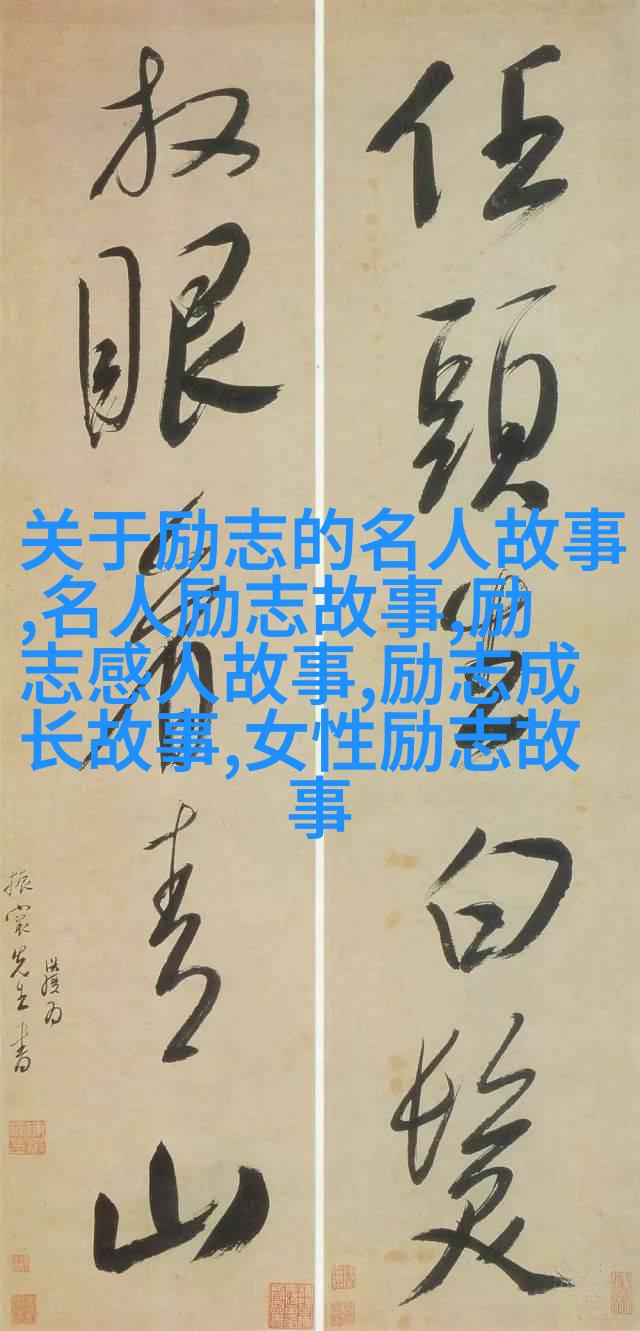 任頭生白髮
放眼看青山
关于励志的名人故事
,名人励志故事,励
志感人故事,励志成
长故事,女性励志故
事